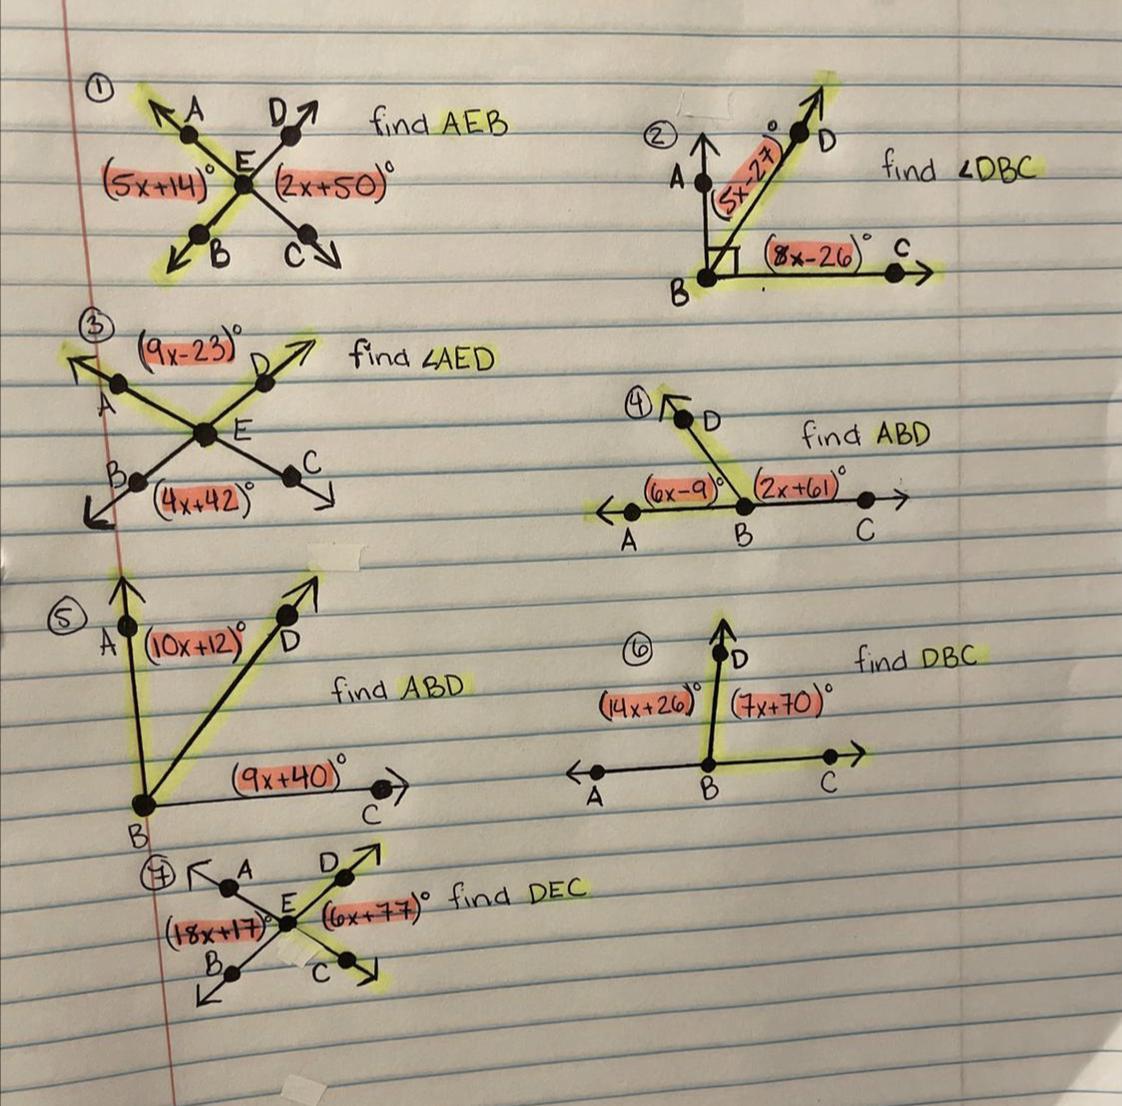 ①
A D find AEB
E
(5x+14)° (2x+50)°
B C
②
A (5x-27)° D find ∠DBC
(8x-26)° C
B
③
(9x-23)° D find ∠AED
A
E
B C
(4x+42)°
④
D find ABD
(6x-9)° (2x+61)°
A B C
⑤
A (10x+12)° D
find ABD
(9x+40)°
C
B
⑥
D find DBC
(14x+26)° (7x+70)°
A B C
⑦
A D
E find DEC
(18x+17)° (6x+77)°
B C